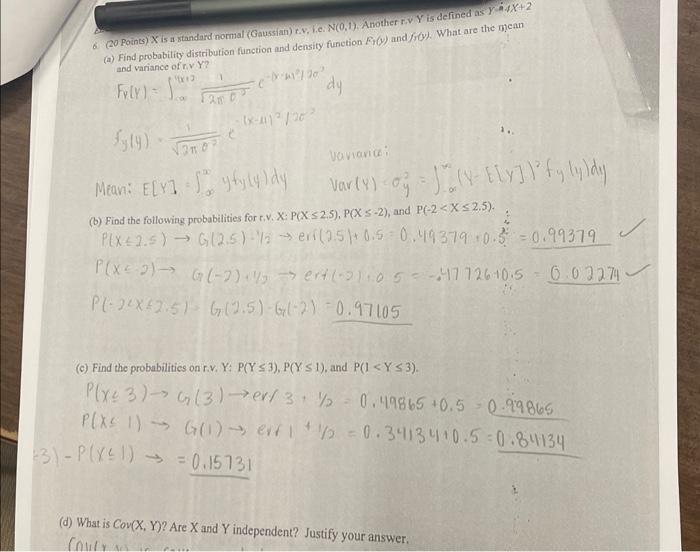 6. (20 Points) X is a standard normal (Gaussian) r.v, i.e. N(0,1). Another r.v Y is defined as Y=4X+2
(a) Find probability distribution function and density function F_Y(y) and f_Y(y). What are the mean
and variance of r.v Y?
F_Y(Y) = ∫_{-∞}^{4x+2} 1/√(2πσ²) e^{-(x-μ)²/2σ²} dy
f_y(y) = 1/√(2πσ²) e^{-(x-μ)²/2σ²}
Variance:
Mean: E[Y] = ∫_∞^∞ y f_y(y) dy Var(Y) = σ_y² = ∫_{-∞}^∞ (Y - E[Y])² f_y(y) dy
(b) Find the following probabilities for r.v. X: P(X ≤ 2.5), P(X ≤ -2), and P(-2 < X ≤ 2.5).
P(X ≤ 2.5) → G(2.5) + 1/2 → erf(2.5) + 0.5 = 0.49379 + 0.5 = 0.99379 ✓
P(X ≤ -2) → G(-2) + 1/2 → erf(-2) + 0.5 = -.47726 + 0.5 = 0.02274 ✓
P(-2<X≤2.5) = G(2.5) - G(-2) = 0.97105
(c) Find the probabilities on r.v. Y: P(Y ≤ 3), P(Y ≤ 1), and P(1 < Y ≤ 3).
P(X ≤ 3) → G(3) → erf 3 + 1/2 = 0.49865 + 0.5 = 0.99865
P(X ≤ 1) → G(1) → erf 1 + 1/2 = 0.34134 + 0.5 = 0.84134
3) - P(Y ≤ 1) → = 0.15731
(d) What is Cov(X, Y)? Are X and Y independent? Justify your answer.